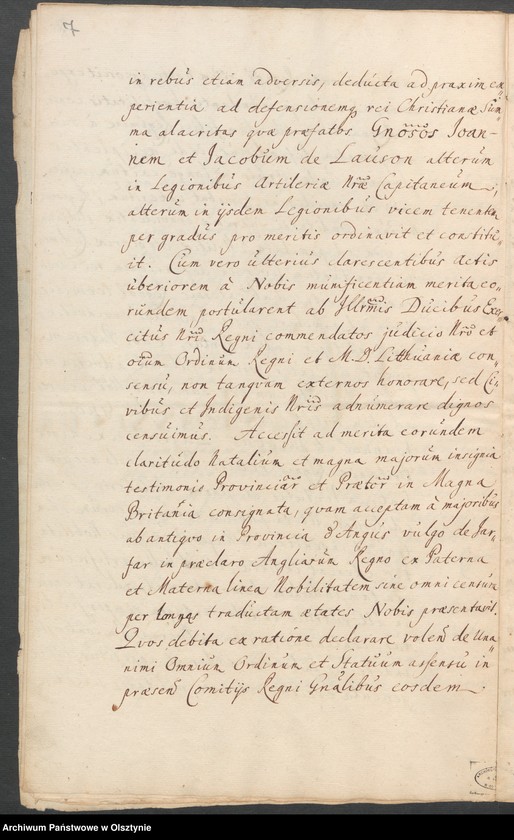 7
in rebus etiam adversis, deducta ad praxim ex„
perientia ad defensionemq rei Christianæ Sum„
ma alacritas quæ præfatos Gnōsos Joan-
nem et Jacobum de Lauson alterum
in Legionibus Artileriæ Nræ Capitaneum,
alterum in ijsdem Legionibus vicem tenentem
per gradus pro meritis ordinavit et constitu„
it. Cum vero ulterius clarescentibus actis
uberiorem à Nobis munificentiam merita eo„
rundem postularent ab Illrmis Ducibus Exer„
citus Nri Regni commendatos judicio Nro et
oium Ordinum Regni et M. D. Litthuaniæ con„
sensu, non tanqvam externos honorare, sed Ci„
vibus et Indigenis Nris adnumerare dignos
censuimus. Accessit ad merita eorundem
claritudo Natalium et magna majorum insignia
testimonio Provinciar et Prætor in Magna
Britania consignata, quam acceptam à majoribus
ab antiqvo in Provincia d'Angus vulgo de Jar„
far in præclaro Angliarum Regno ex Paterna
et Materna linea Nobilitatem sine omni censura
per longas traductam ætates Nobis præsentavit.
Qvos debita ex ratione declarare volen de Una„
nimi Omnium Ordinum et Statuum assensu in
præsen Comitijs Regni Gnalibus eosdem
Archiwum Państwowe w Olsztynie